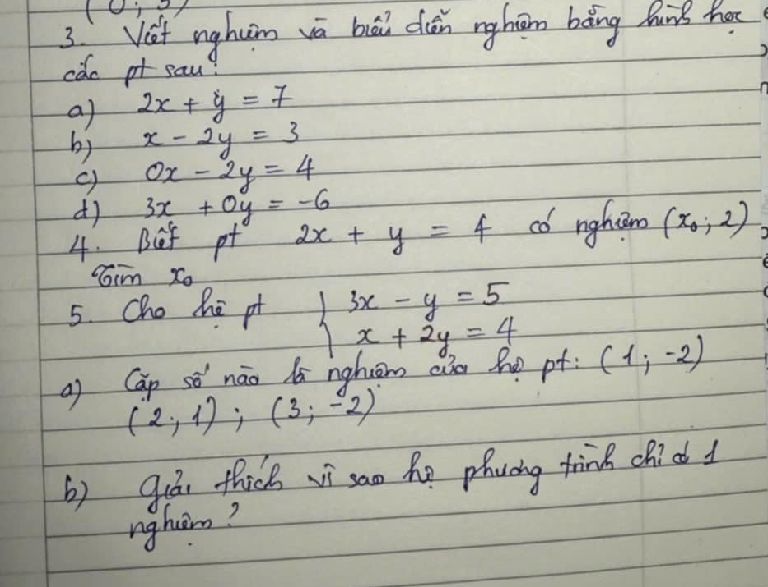 3. Viết nghiệm và biểu diễn nghiệm bằng hình học
các pt sau:
a) 2x + y = 7
b) x - 2y = 3
c) 0x - 2y = 4
d) 3x + 0y = -6
4. Biết pt 2x + y = 4 có nghiệm (x₀; 2)
Tìm x₀
5. Cho hệ pt { 3x - y = 5
x + 2y = 4
a) Cặp số nào là nghiệm của hệ pt: (1; -2)
(2; 1); (3; -2)
b) Giải thích vì sao hệ phương trình chỉ có 1
nghiệm?